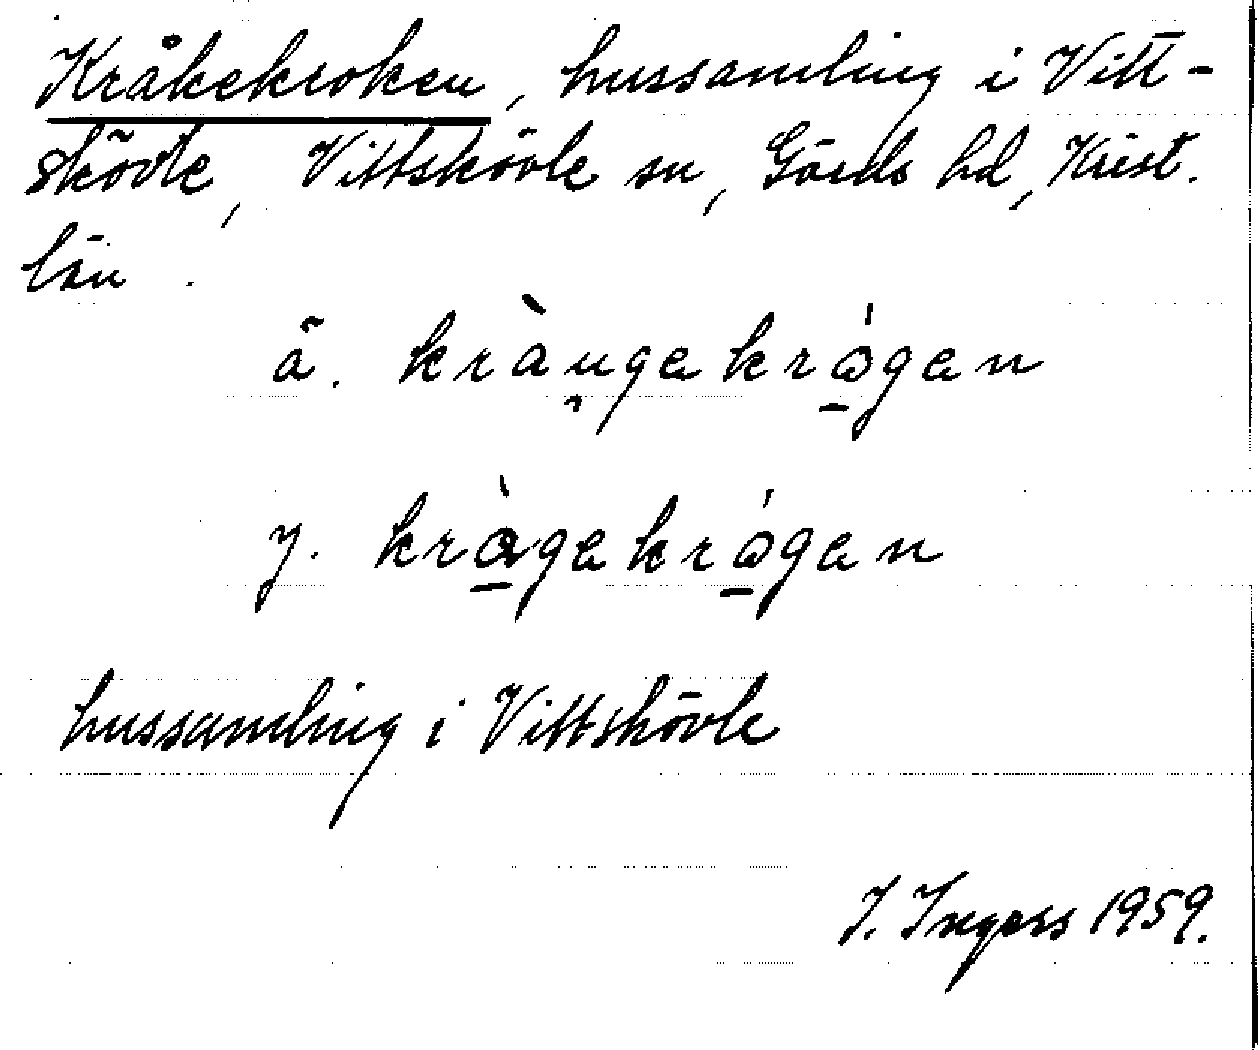 Kråkekroken, hussamling i Vitt-
skövle, Vittskövle sn, Gärds hd, Krist.
län.
ä. kràu̯gekrǻ̱gen
y. krà̱gekrǻ̱gen
hussamling i Vittskövle
I. Ingers 1959.